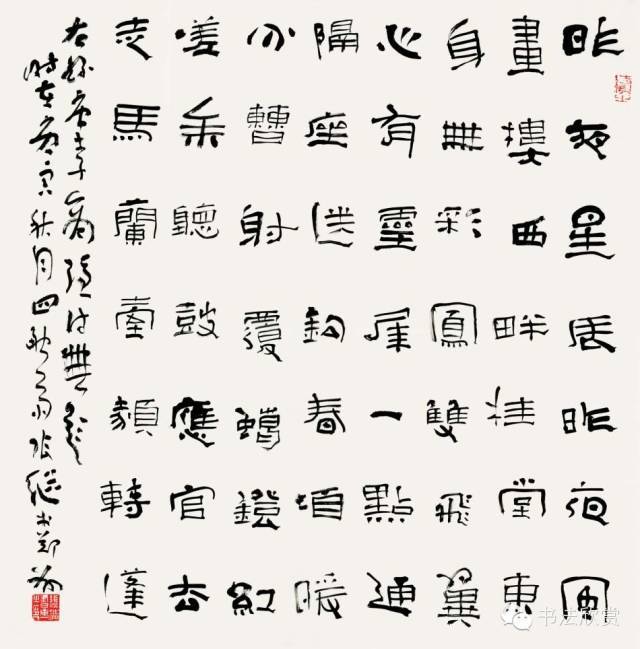 昨夜星辰昨夜風
畫樓西畔桂堂東
身無彩鳳雙飛翼
心有靈犀一點通
隔座送鈎春酒暖
分曹射覆蠟鐙紅
嗟余聽鼓應官去
走馬蘭臺類轉蓬
右錄唐李商隱詩無題
時在庚寅秋月四翁張繼書鄭
书法欣赏